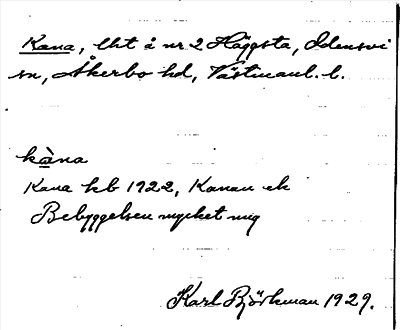 Kana, lht å nr. 2 Häggsta, Odensvi
sn, Åkerbo hd, Västmanl. l.
kàna
Kana kb 1922, Kanan ek
Bebyggelsen mycket
Karl Björkman 1929.